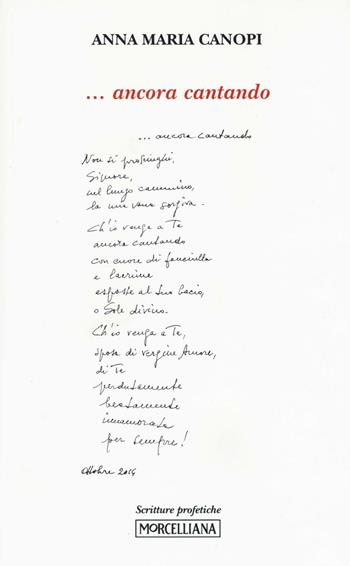 ANNA MARIA CANOPI
... ancora cantando
... ancora cantando
Non si prosciughi,
Signore,
nel lungo cammino,
la mia vena sorgiva.
Ch'io venga a Te
ancora cantando
con cuore di fanciulla
e lacrime
esposte al Tuo bacio,
o Sole divino.
Ch'io venga a Te,
sposa di vergine Amore,
di Te
perdutamente
beatamente
innamorata
per sempre!
Ottobre 2014
Scritture profetiche
MORCELLIANA